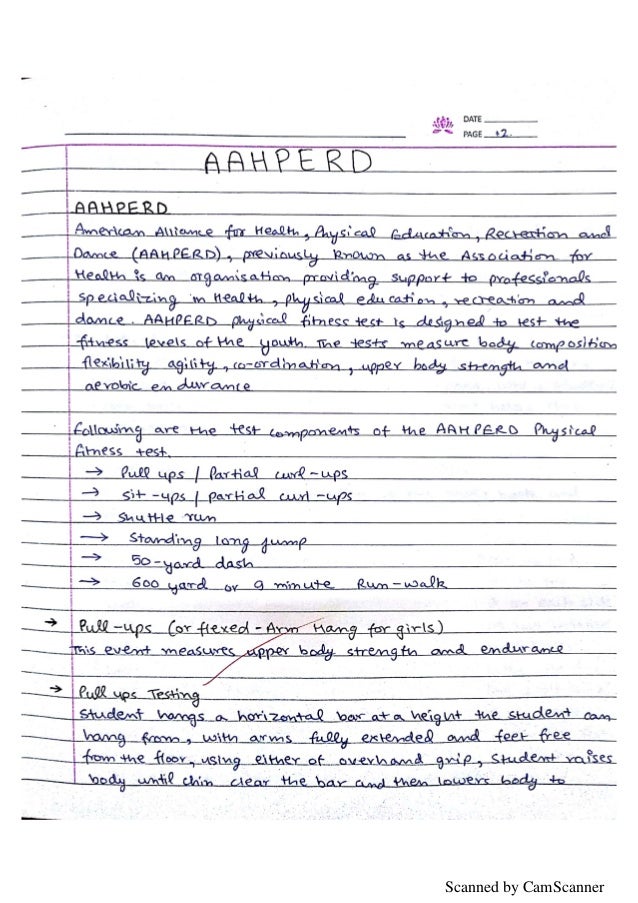 DATE
PAGE 12.
AAHPERD
AAHPERD
American Alliance for Health, Physical Education, Recreation and
Dance (AAHPERD), previously known as the Association for
Health is an organisation providing support to professionals
specializing in Health, physical education, recreation and
dance. AAHPERD physical fitness test is designed to test the
fitness levels of the youth. The tests measure body composition
flexibility agility, co-ordination, upper body strength and
aerobic endurance
Following are the test components of the AAHPERD Physical
fitness test.
→ Pull ups / Partial curl-ups
→ sit-ups / partial curl-ups
→ shuttle run
→ Standing long jump
→ 50-yard dash
→ 600 yard or 9 minute Run-walk
→ Pull-ups (or flexed-Arm Hang for girls)
This event measures upper body strength and endurance
→ Pull ups Testing
Student hangs a horizontal bar at a height the student can
hang from, with arms fully extended and feet free
from the floor, using either of overhand grip, Student raises
body until chin clear the bar and then lowers body to
Scanned by CamScanner